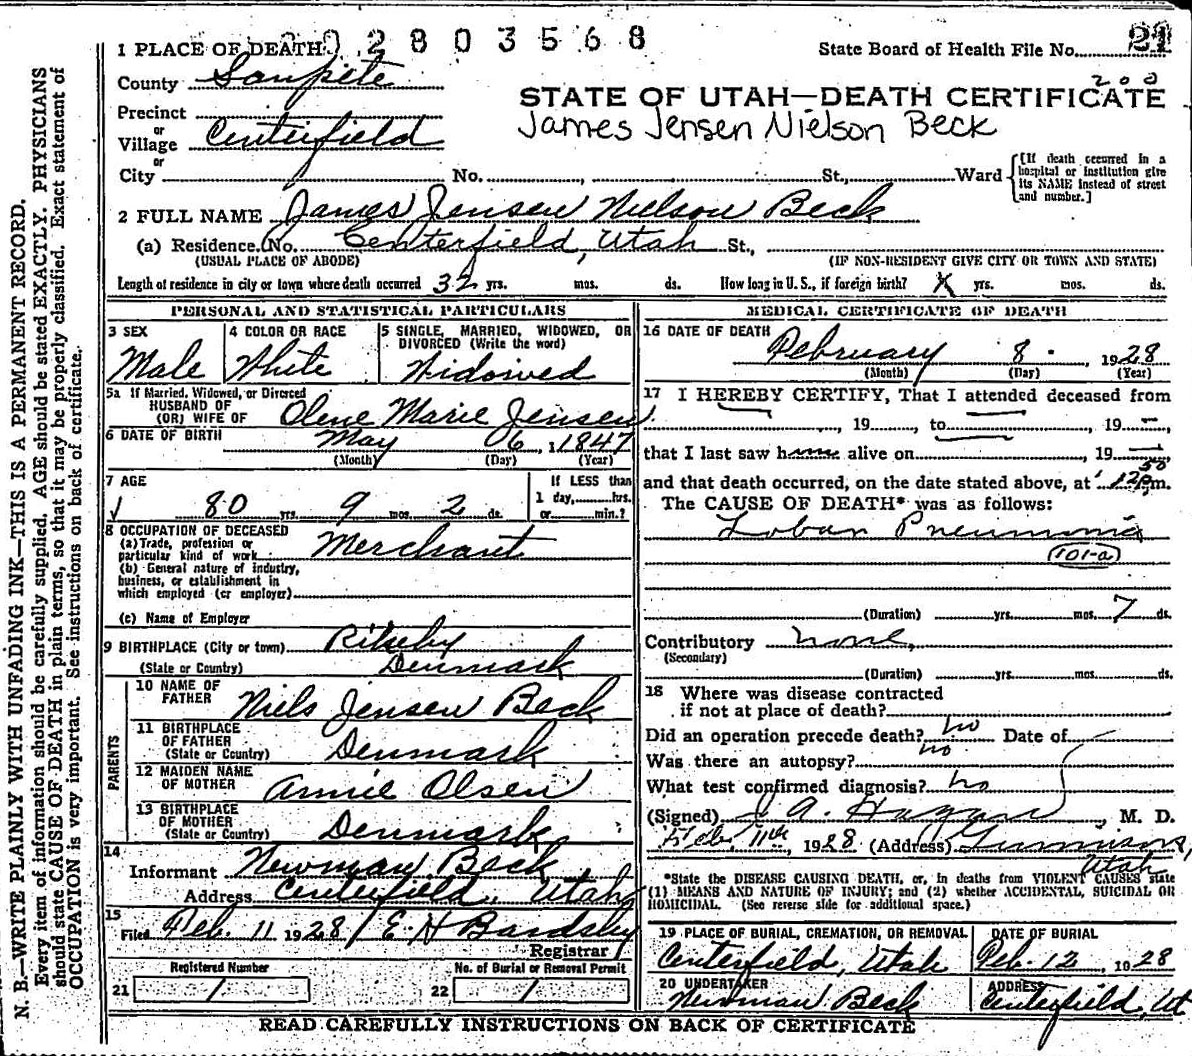 2 8 0 3 5 6 8
1 PLACE OF DEATH
State Board of Health File No. 21
200
County Sanpete
STATE OF UTAH—DEATH CERTIFICATE
James Jensen Nielson Beck
Precinct
or
Village Centerfield
or
City No. St., Ward
[If death occurred in a hospital or institution give its NAME instead of street and number.]
2 FULL NAME James Jensen Nielson Beck
(a) Residence. (No. Centerfield, Utah St.,
(USUAL PLACE OF ABODE) (IF NON-RESIDENT GIVE CITY OR TOWN AND STATE)
Length of residence in city or town where death occurred 32 yrs. mos. ds. How long in U. S., if foreign birth? X yrs. mos. ds.
PERSONAL AND STATISTICAL PARTICULARS
3 SEX
Male
4 COLOR OR RACE
White
5 SINGLE, MARRIED, WIDOWED, OR
DIVORCED (Write the word)
Widowed
5a If Married, Widowed, or Divorced
HUSBAND OF
(OR) WIFE OF Olene Marie Jensen
6 DATE OF BIRTH May 6, 1847
(Month) (Day) (Year)
7 AGE
80 yrs. 9 mos. 2 ds.
If LESS than
1 day, hrs.
or min.?
8 OCCUPATION OF DECEASED
(a) Trade, profession or
particular kind of work Merchant
(b) General nature of industry,
business, or establishment in
which employed (or employer)
(c) Name of Employer
9 BIRTHPLACE (City or town)
(State or Country) Denmark
PARENTS
10 NAME OF
FATHER Niels Jensen Beck
11 BIRTHPLACE
OF FATHER
(State or Country) Denmark
12 MAIDEN NAME
OF MOTHER Annie Olsen
13 BIRTHPLACE
OF MOTHER
(State or Country) Denmark
14
Informant Newman Beck
Address Centerfield, Utah
15
Filed Feb. 11 1928 E. H Bardsley
Registrar
Registered Number
21
No. of Burial or Removal Permit
22
MEDICAL CERTIFICATE OF DEATH
16 DATE OF DEATH
February 8. 1928
(Month) (Day) (Year)
17 I HEREBY CERTIFY, That I attended deceased from
, 19 , to , 19 —
that I last saw h alive on , 19 —
and that death occurred, on the date stated above, at 12 50 pm.
The CAUSE OF DEATH* was as follows:
Lobar Pneumonia
101-a
(Duration) yrs. mos. 7 ds.
Contributory none,
(Secondary)
(Duration) yrs. mos. ds.
18 Where was disease contracted
if not at place of death?
Did an operation precede death? no Date of
Was there an autopsy? no
What test confirmed diagnosis? no
(Signed) J A. Hagan, M. D.
Feb. 11th, 1928 (Address) Gunnison,
Utah
*State the DISEASE CAUSING DEATH, or, in deaths from VIOLENT CAUSES state
(1) MEANS AND NATURE OF INJURY; and (2) whether ACCIDENTAL, SUICIDAL OR
HOMICIDAL. (See reverse side for additional space.)
19 PLACE OF BURIAL, CREMATION, OR REMOVAL
Centerfield, Utah
DATE OF BURIAL
Feb. 12, 1928
20 UNDERTAKER
Newman Beck
ADDRESS
Centerfield, Ut
READ CAREFULLY INSTRUCTIONS ON BACK OF CERTIFICATE
N. B.—WRITE PLAINLY WITH UNFADING INK—THIS IS A PERMANENT RECORD.
Every item of information should be carefully supplied. AGE should be stated EXACTLY. PHYSICIANS
should state CAUSE OF DEATH in plain terms, so that it may be properly classified. Exact statement of
OCCUPATION is very important. See instructions on back of certificate.